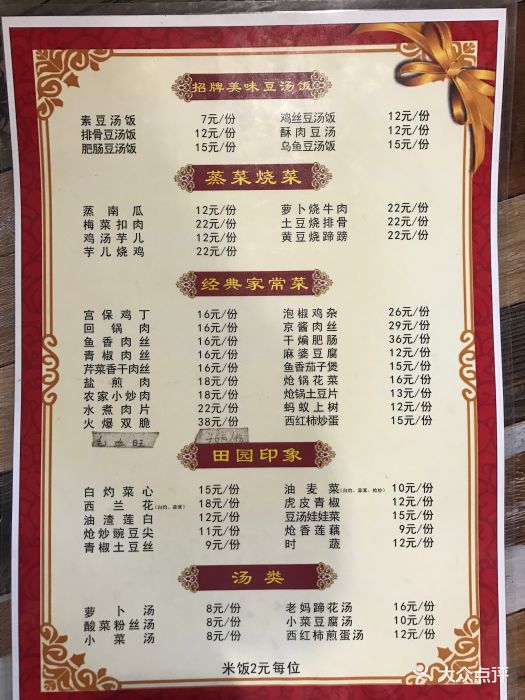 招牌美味豆汤饭
素豆汤饭 7元/份 鸡丝豆汤饭 12元/份
排骨豆汤饭 12元/份 酥肉豆汤 12元/份
肥肠豆汤饭 15元/份 乌鱼豆汤饭 15元/份
蒸菜烧菜
蒸南瓜 12元/份 萝卜烧牛肉 22元/份
梅菜扣肉 22元/份 土豆烧排骨 22元/份
鸡汤芋儿 12元/份 黄豆烧蹄膀 22元/份
芋儿烧鸡 22元/份
经典家常菜
宫保鸡丁 16元/份 泡椒鸡杂 26元/份
回锅肉 16元/份 京酱肉丝 29元/份
鱼香肉丝 16元/份 干煸肥肠 36元/份
青椒肉丝 16元/份 麻婆豆腐 12元/份
芹菜香干肉丝 16元/份 鱼香茄子煲 15元/份
盐煎肉 18元/份 炝锅花菜 16元/份
农家小炒肉 18元/份 炝锅土豆片 13元/份
水煮肉片 22元/份 蚂蚁上树 12元/份
火爆双脆 38元/份 西红柿炒蛋 15元/份
毛血旺
田园印象
白灼菜心 15元/份 油麦菜(白灼、蒜蓉、炝炒) 10元/份
西兰花(白灼、蒜蓉) 18元/份 虎皮青椒 12元/份
油渣莲白 12元/份 豆汤娃娃菜 15元/份
炝炒豌豆尖 11元/份 炝香莲藕 9元/份
青椒土豆丝 9元/份 时蔬 12元/份
汤类
萝卜汤 8元/份 老妈蹄花汤 16元/份
酸菜粉丝汤 8元/份 小菜豆腐汤 10元/份
小菜汤 8元/份 西红柿煎蛋汤 12元/份
米饭2元每位
大众点评